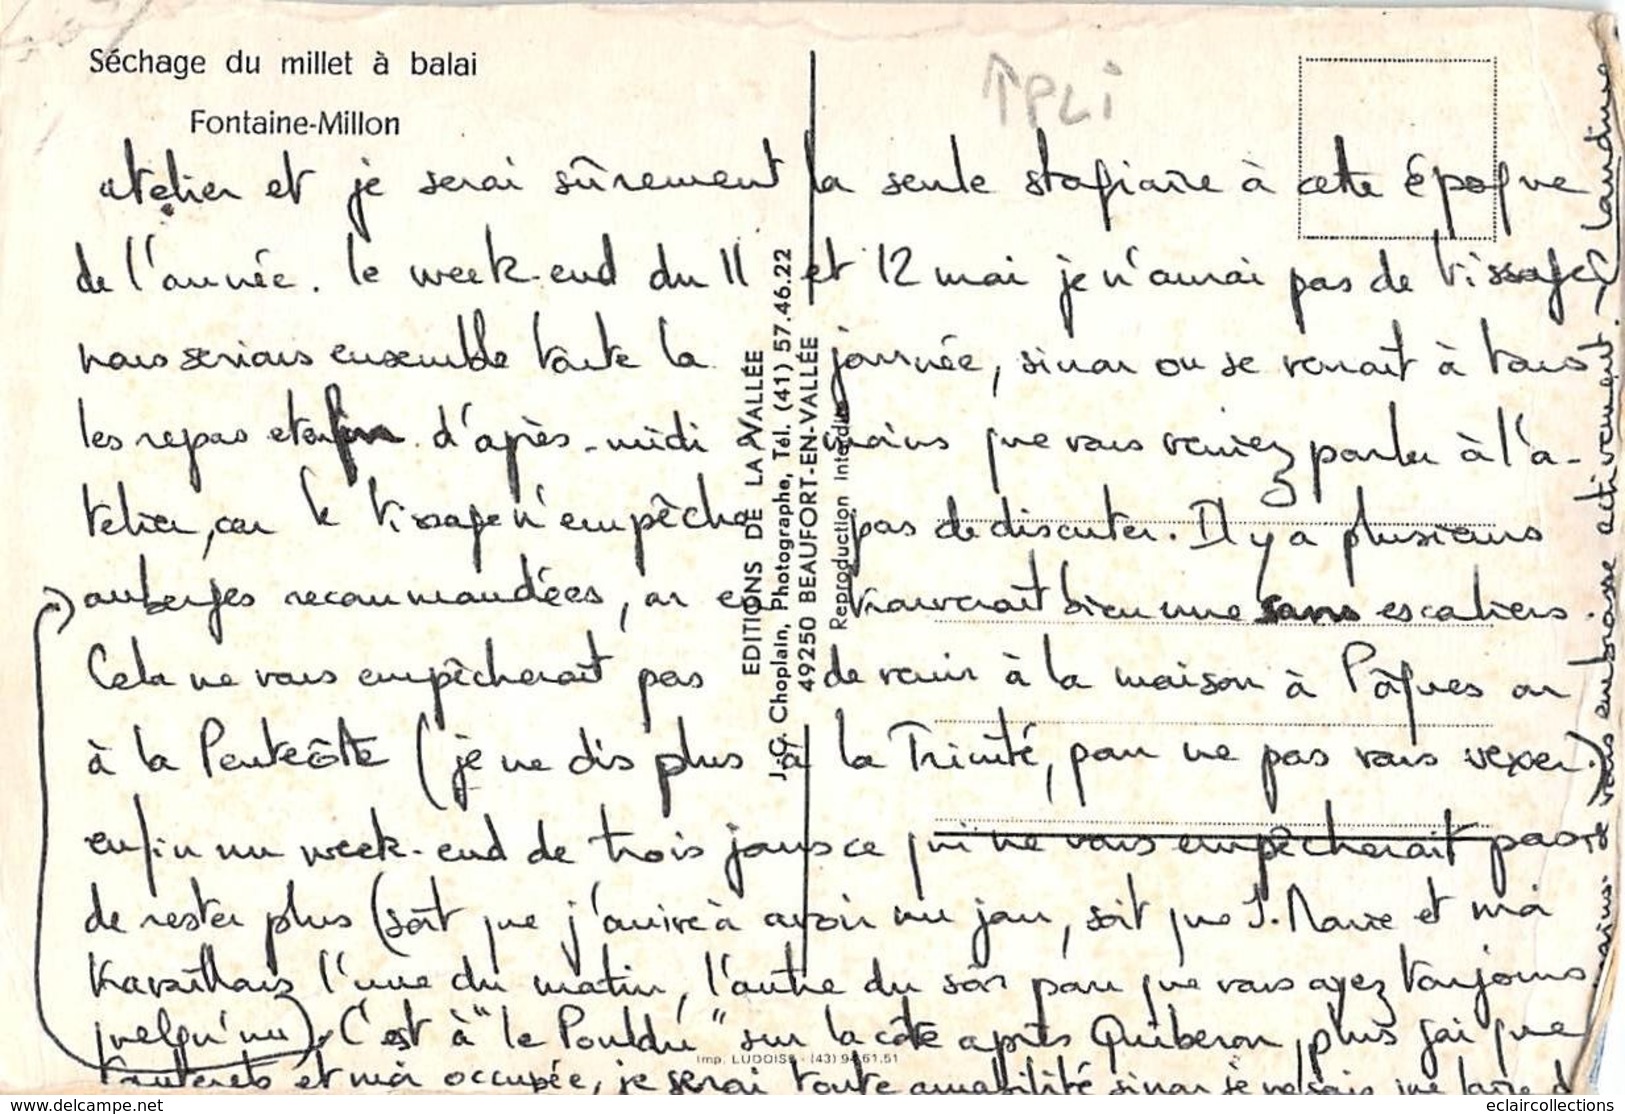 Séchage du millet à balai
Fontaine-Millon
↑PLi
atelier et je serai sûrement la seule stagiaire à cette époque
de l'année. le week-end du 11 et 12 mai je n'aurai pas de tissage
nous serions ensemble toute la journée, sinon on se verrait à tous
les repas et en fin d'après-midi à moins que vous veniez parler à l'a-
telier, car le tissage n'empêche pas de discuter. Il y a plusieurs
auberges recommandées, on en trouverait bien une sans escaliers.
Cela ne vous empêcherait pas de venir à la maison à Pâques ou
à la Pentecôte (je ne dis plus à la Trinité, pour ne pas vous vexer.)
enfin un week-end de trois jours ce qui ne vous empêcherait pas
de rester plus (soit que j'arrive à avoir un jour, soit que J. Marie et moi
travaillions l'une du matin, l'autre du soir pour que vous ayez toujours
quelqu'un). C'est à "le Pouldu" sur la côte après Quiberon, plus gai que
et moi occupée, je serai toute amabilité sinon je ne
vous embrasse activement. Claudine
EDITIONS DE LA VALLÉE
J.-C. Choplain, Photographe, Tél. (41) 57.46.22
49250 BEAUFORT-EN-VALLÉE
Reproduction Interdite
Imp. LUDOIS - (43) 94.61.51
www.delcampe.net
eclaircollections